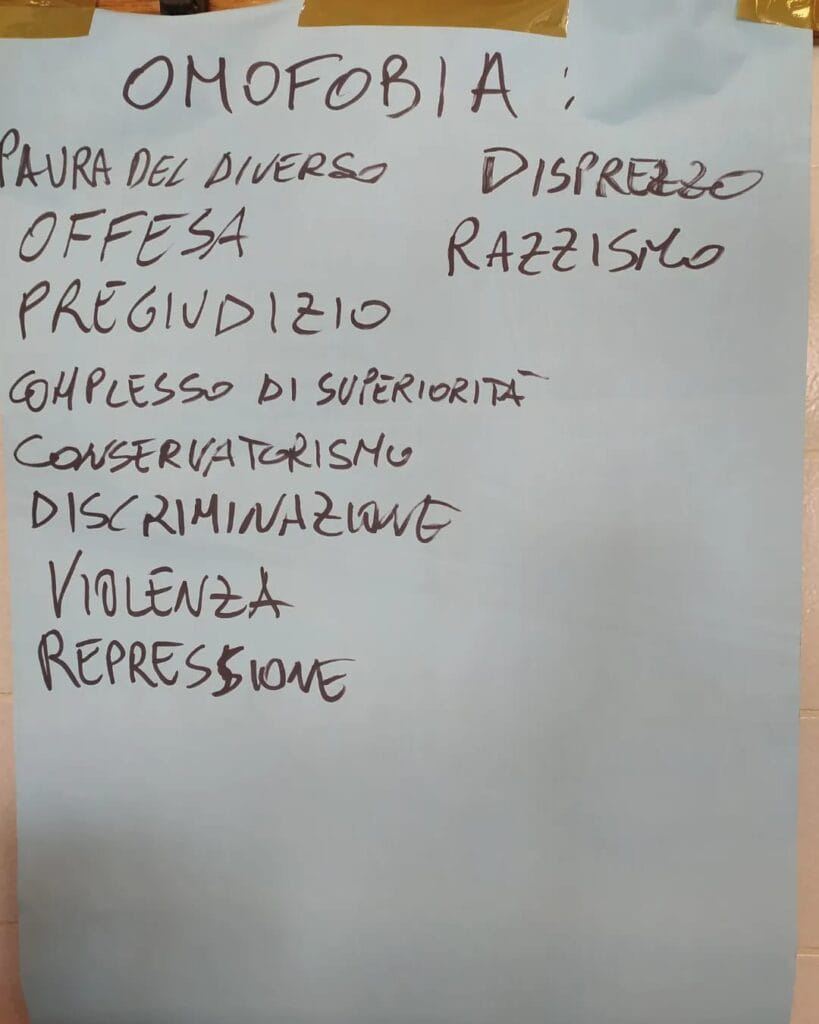 OMOFOBIA :
PAURA DEL DIVERSO
OFFESA
PREGIUDIZIO
COMPLESSO DI SUPERIORITÀ
CONSERVATORISMO
DISCRIMINAZIONE
VIOLENZA
REPRESSIONE
DISPREZZO
RAZZISMO